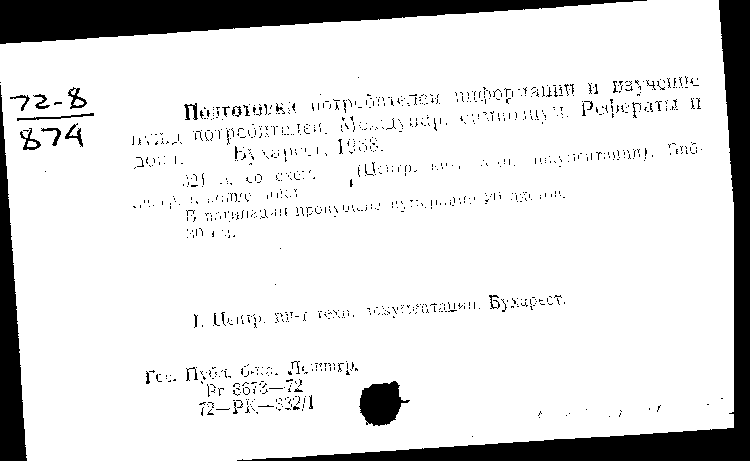 72-8
874
Подготовка потребителей информации и изучение
нужд потребителей. Междунар. симпозиум. Рефераты и
докл. Бухарест, 1968.
321 л. со схем. (Центр. ин-т техн. документации). Биб-
В пагинации пропущено нумерации 20 листов.
30 см.
I. Центр. ин-т техн. документации. Бухарест.
Гос. Публ. б-ка. Ленингр.
Рг 8673—72
72—РК—832/1